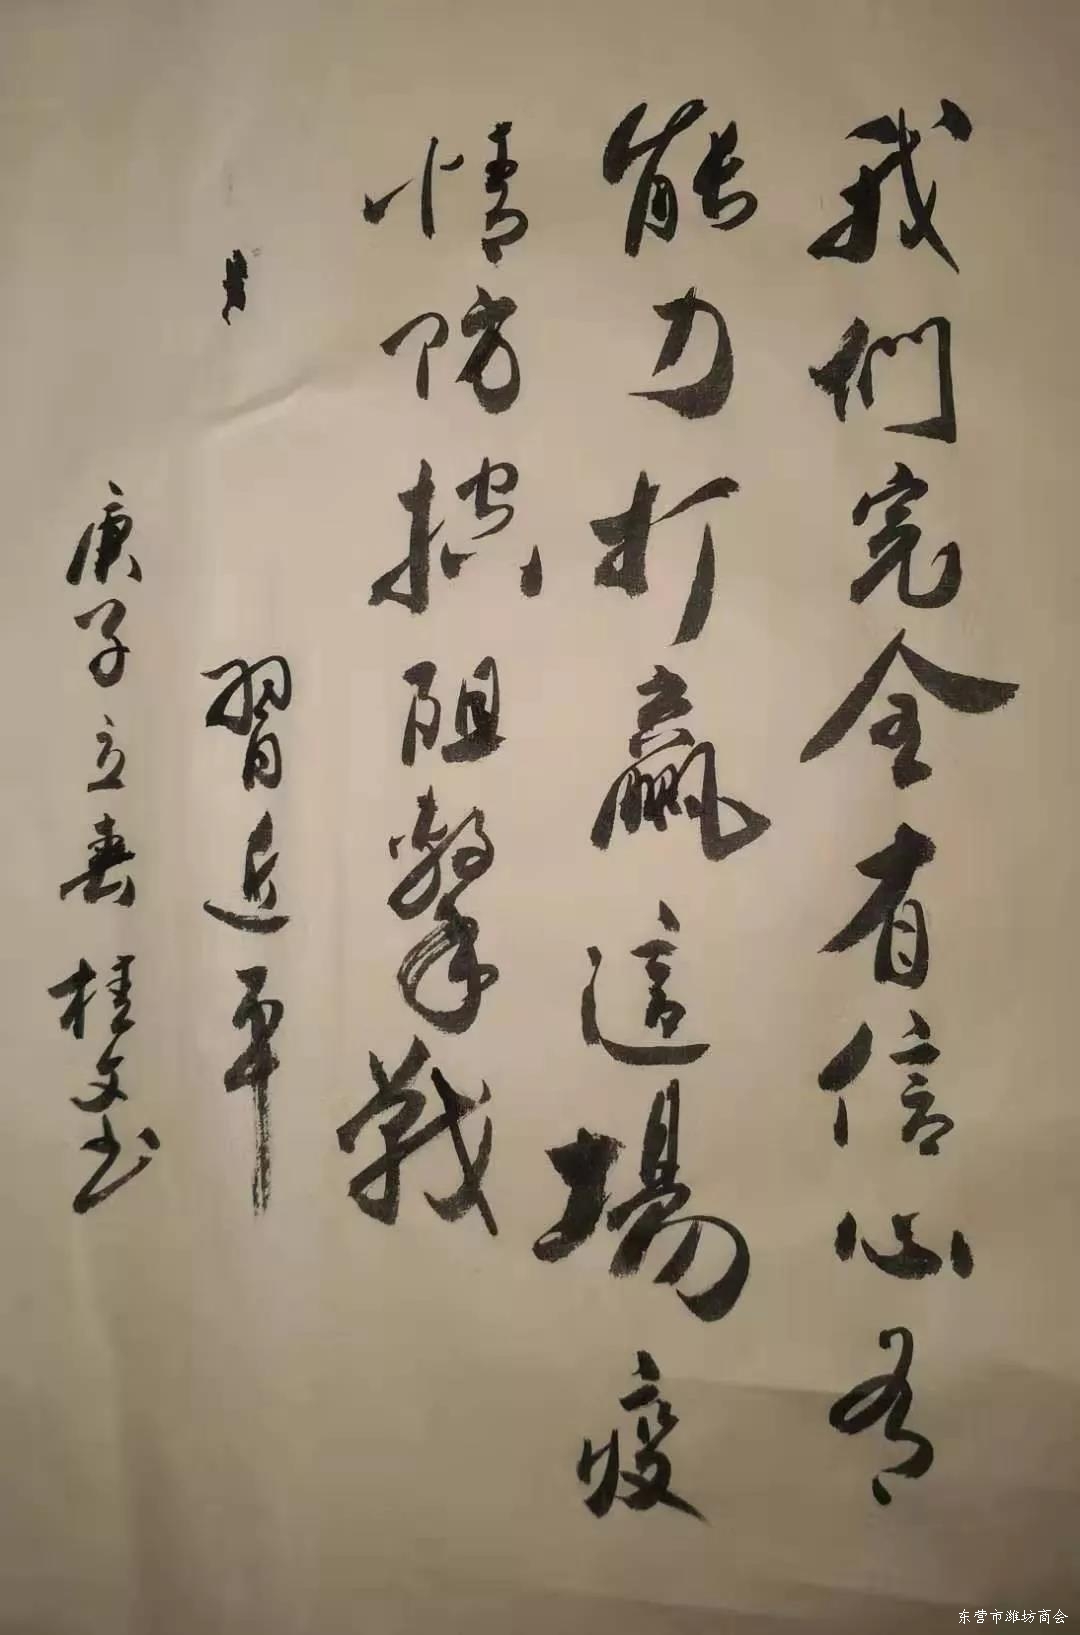 我们完全有信心有
能力打赢這場疫
情防控阻擊戰
習近平
庚子立春桂文书
东营市潍坊商会